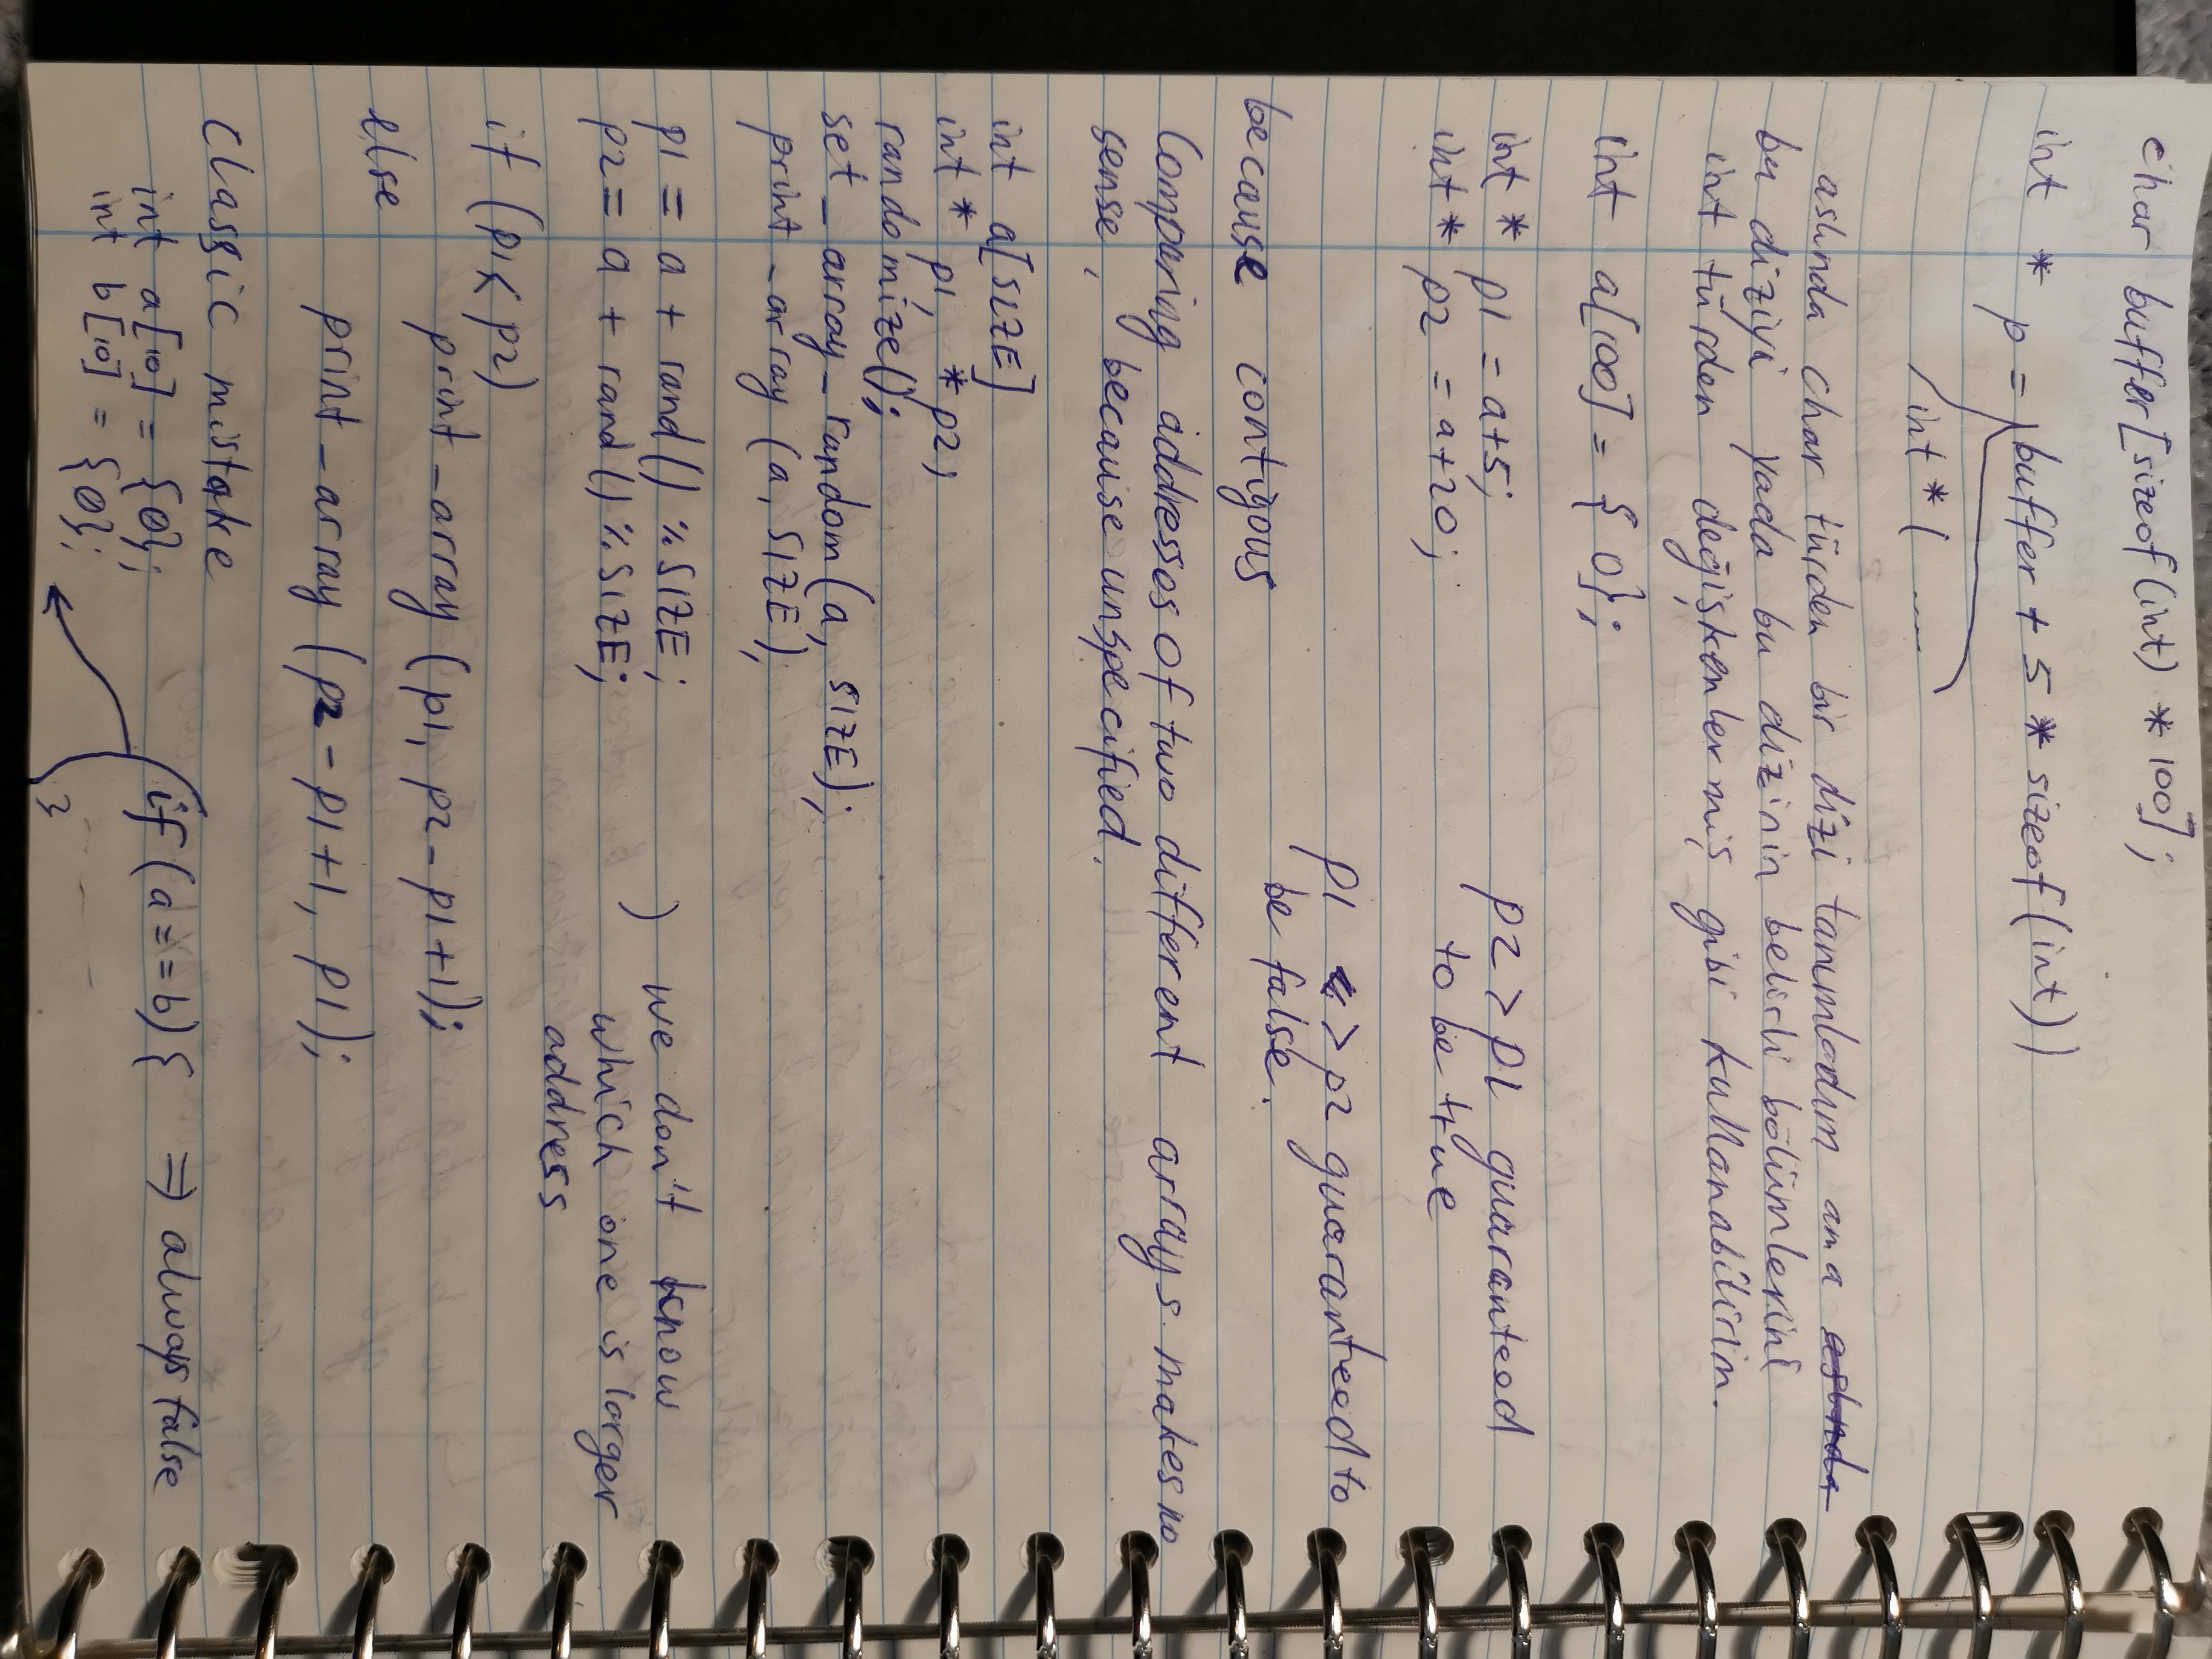 char buffer[sizeof(int) * 100];
int * p = (buffer + 5 * sizeof(int))
int * ( .....
aslında char türden bir dizi tanımladım ama aslında
bu diziyi yada bu dizinin belirli bölümlerini
int türden değişkenler miş gibi kullanabilirim.
int a[100] = { 0};
int * p1 = a+5;
int * p2 = a+20;
p2 > p1 guaranteed
to be true
p1 > p2 guaranteed to
be false.
because contigous
Comparing addresses of two different arrays makes no
sense, because unspecified.
int a[SIZE]
int * p1, *p2;
randomize();
set_array_random(a, SIZE);
print_array (a, SIZE);
p1 = a + rand() % SIZE;
p2 = a + rand() % SIZE;
) we don't know
which one is larger
address
if (p1 < p2)
print_array (p1, p2 - p1 +1);
else
print_array (p2 - p1 +1, p1);
classic mistake
int a[10] = {0};
int b[10] = {0};
if (a == b) { => always false
}